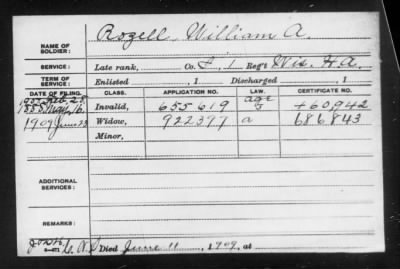 NAME OF SOLDIER: Rozell William A.
SERVICE: Late rank, Co. I, 1 Reg't Wis. H A.
TERM OF SERVICE: Enlisted , 1 Discharged , 1
DATE OF FILING. CLASS. APPLICATION NO. LAW. CERTIFICATE NO.
1907 Feb. 25 age
1888 May 16 Invalid, 655619 J 460,942
1909 June 22 Widow, 922397 a 686843
Minor,
ADDITIONAL SERVICES:
REMARKS:
Died June 11, 1909, at